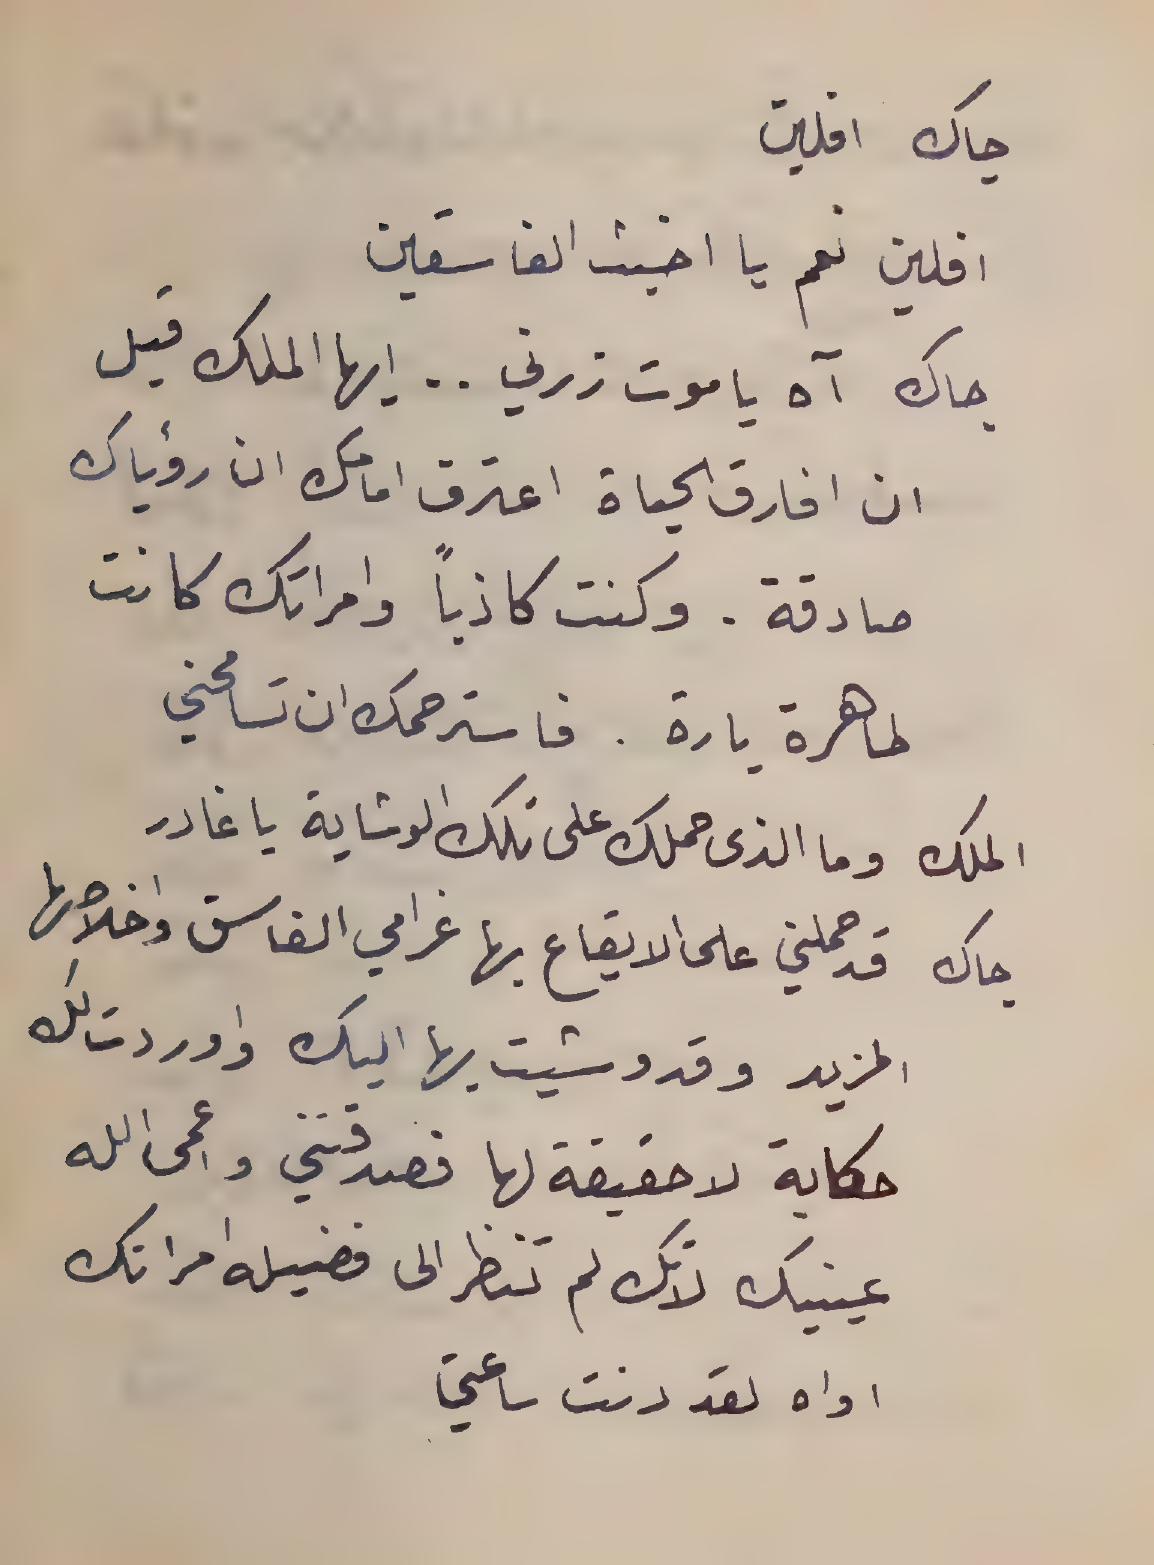 جاك افلين
افلين نعم يا اخبث الفاسقين
جاك آه يا موت زرني .. ايها الملك قبل
ان افارق الحياة اعترف امامك ان رؤياك
صادقة . وكنت كاذباً وامراتك كانت
طاهرة بارة . فاسترحمك ان تسامحني
الملك وما الذى حملك على تلك الوشاية يا غادر
جاك قد حملني على الايقاع بها غرامي الفاسق واخلاصها
المزيد وقد وشيت بها اليك واوردت لك
حكاية لا حقيقة لها فصدقتني واعمى الله
عينيك لانك لم تنظر الى فضيلة امراتك
اواه لقد دنت ساعتي